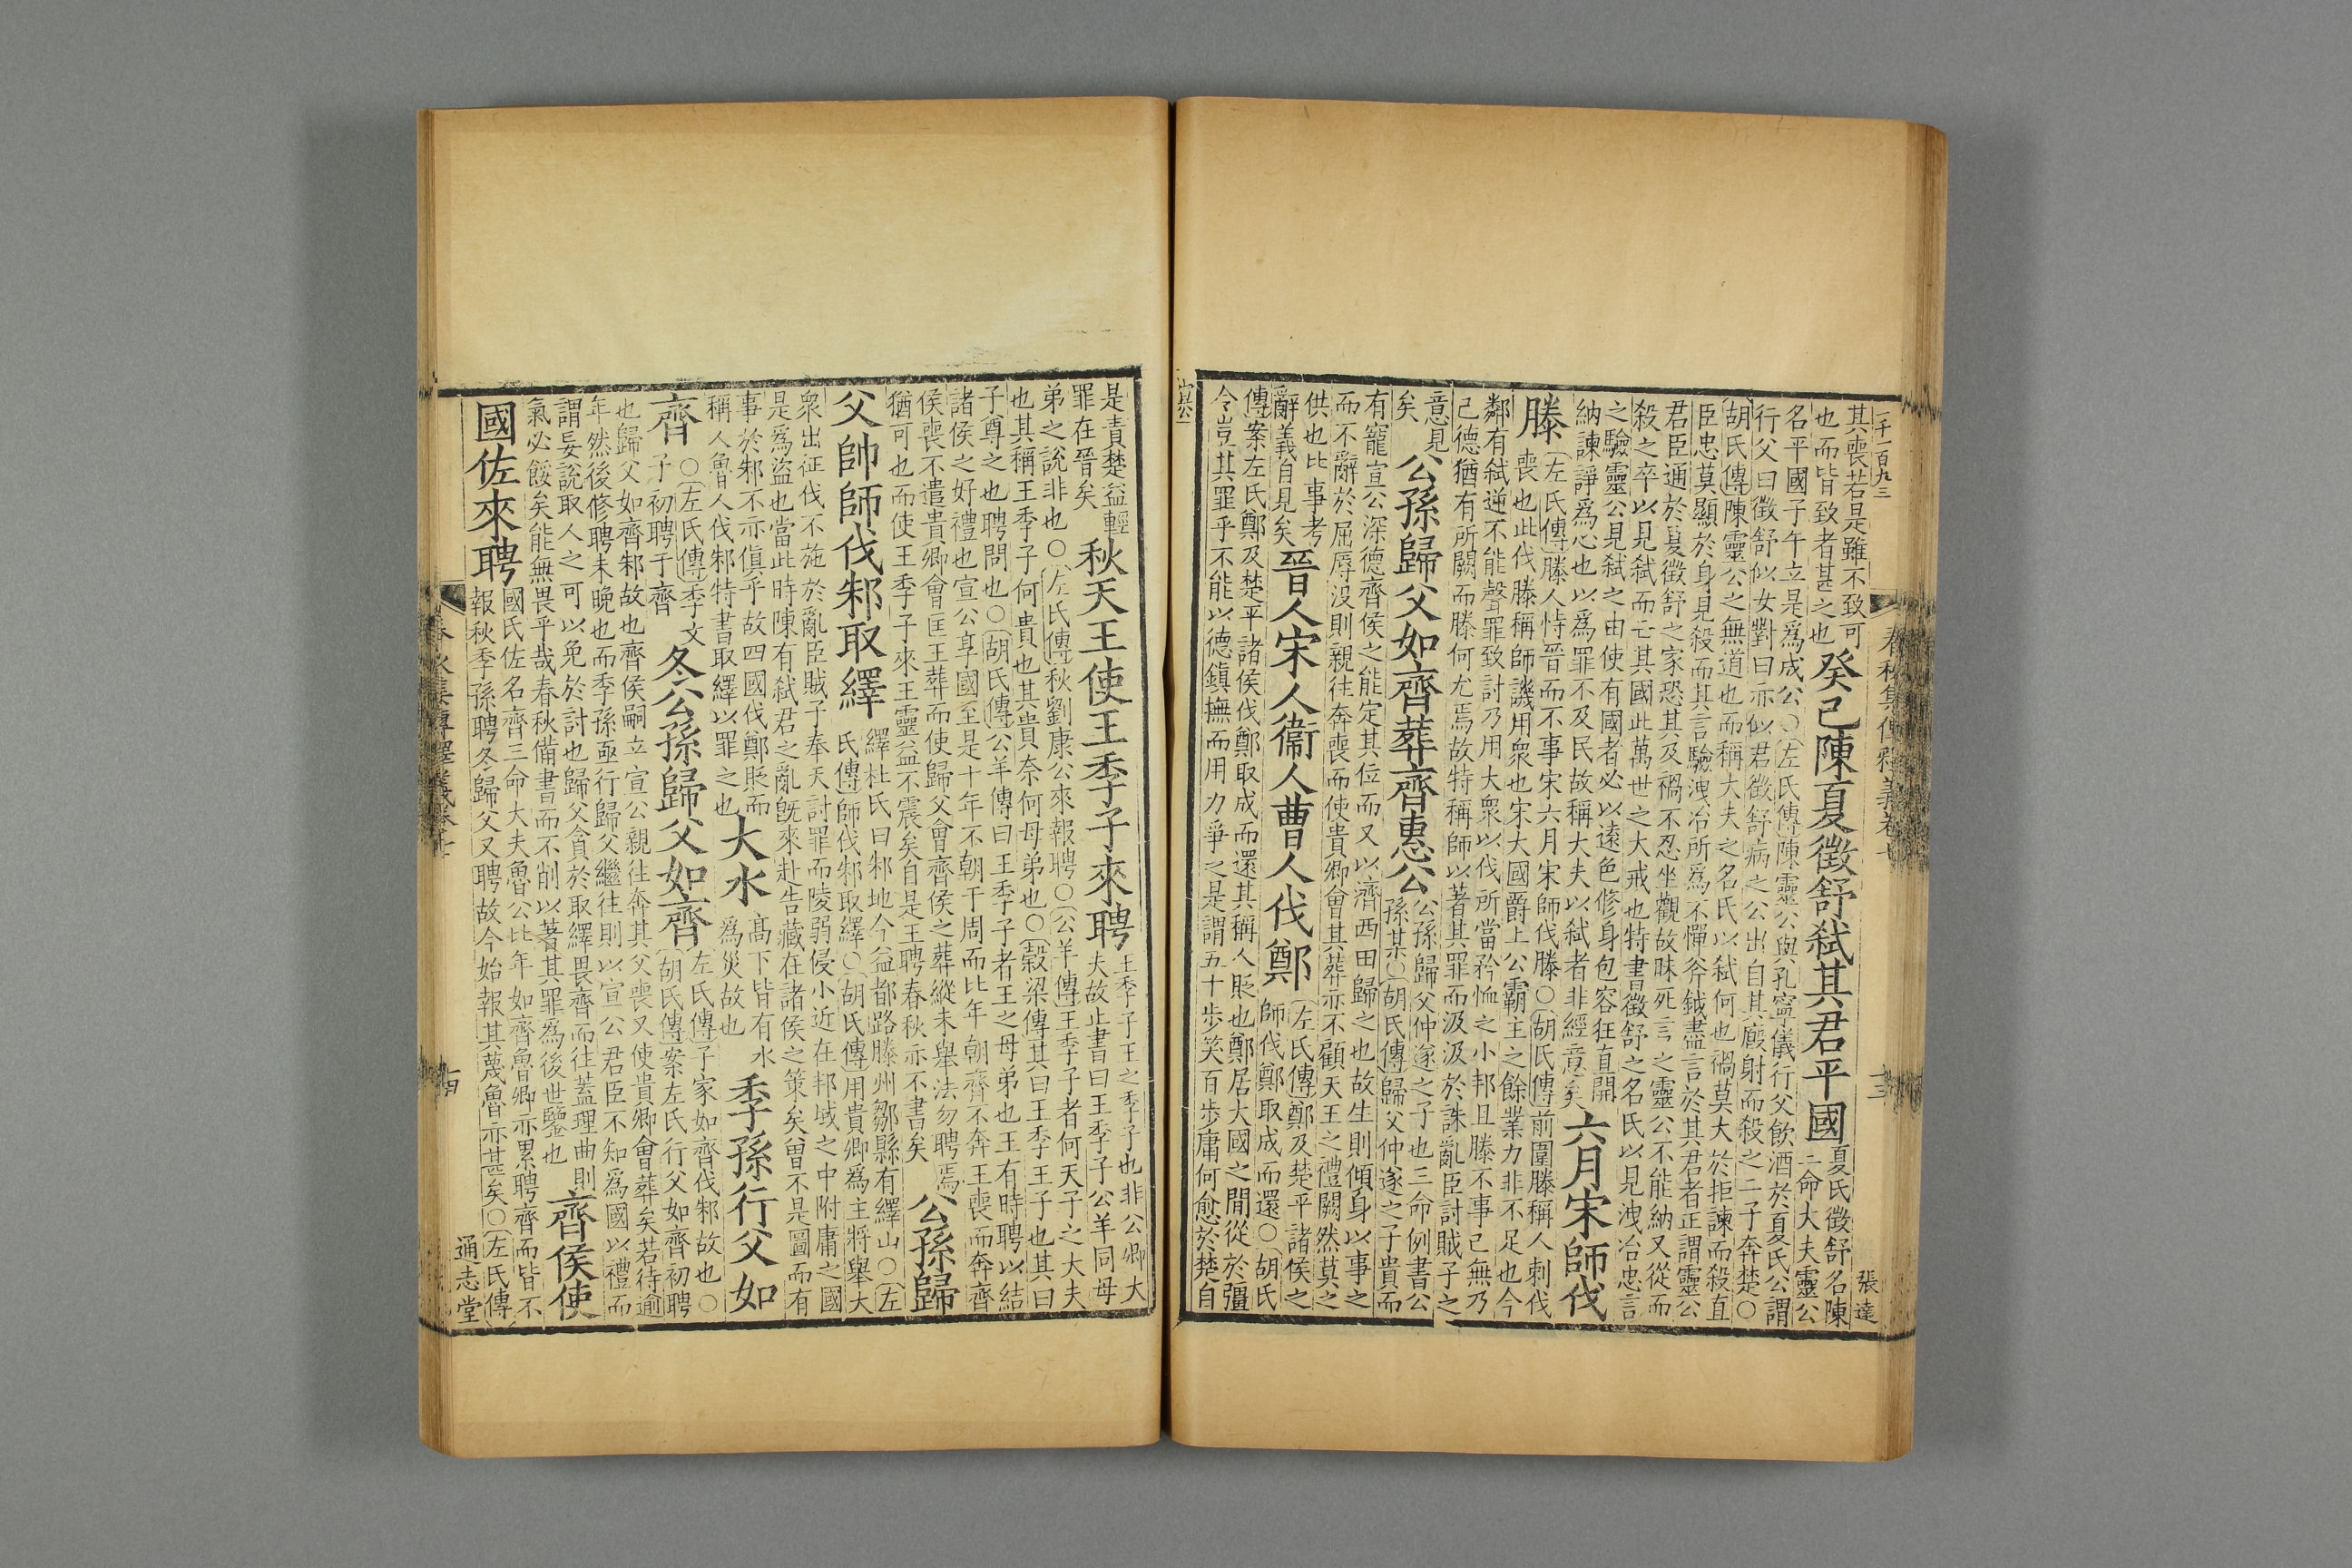 一千一百九三
春秋集傳釋義卷七
十三
張達
其喪若是雖不致可
也而皆致者甚之也
癸巳陳夏徵舒弑其君平國
夏氏徵舒名陳
三命大夫靈公
名平國子午立是爲成公○左氏傳陳靈公與孔寧儀行父飲酒於夏氏公謂
行父曰徵舒似女對曰亦似君徵舒病之公出自其廄射而殺之二子奔楚○
胡氏傳陳靈公之無道也而稱大夫之名氏以弑何也禍莫大於拒諫而殺直
臣忠莫顯於身見殺而其言驗洩冶所爲不憚斧鉞盡言於其君者正謂靈公
君臣通於夏徵舒之家恐其及禍不忍坐觀故昧死言之靈公不能納又從而
殺之卒以見弑而亡其國此萬世之大戒也特書徵舒之名氏以見洩冶忠言
之驗靈公見弑之由使有國者必以遠色修身包容狂直開
納諫諍爲心也以爲罪不及民故稱大夫以弑者非經意矣
六月宋師伐
滕
左氏傳滕人恃晉而不事宋六月宋師伐滕○胡氏傳前圍滕稱人刺伐
喪也此伐滕稱師譏用衆也宋大國爵上公霸主之餘業力非不足也今
鄰有弑逆不能聲罪致討乃用大衆以伐所當矜恤之小邦且滕不事己無乃
己德猶有所闕而滕何尤焉故特稱師以著其罪而汲汲於誅亂臣討賊子之
意見
矣
公孫歸父如齊葬齊惠公
公孫歸父仲遂之子也三命例書公
孫某○胡氏傳歸父仲遂之子貴而
有寵宣公深德齊侯之能定其位而又以濟西田歸之也故生則傾身以事之
而不辭於屈辱没則親往奔喪而使貴卿會其葬亦不顧天王之禮闕然莫之
供也比事考
辭義自見矣
晉人宋人衞人曹人伐鄭
左氏傳鄭及楚平諸侯之
師伐鄭取成而還○胡氏
傳案左氏鄭及楚平諸侯伐鄭取成而還其稱人貶也鄭居大國之間從於彊
令豈其罪乎不能以德鎮撫而用力爭之是謂五十步笑百步庸何愈於楚自
宣公
是責楚益輕
罪在晉矣
秋天王使王季子來聘
王季子王之季子也非公卿大
夫故止書曰王季子公羊同母
弟之說非也○左氏傳秋劉康公來報聘○公羊傳王季子者何天子之大夫
也其稱王季子何貴也其貴奈何母弟也○穀梁傳其曰王季王子也其曰
子尊之也聘問也○胡氏傳公羊傳曰王季子者王之母弟也王有時聘以結
諸侯之好禮也宣公享國至是十年不朝于周而比年朝齊不奔王喪而奔齊
侯喪不遣貴卿會匡王葬而使歸父會齊侯之葬縱未舉法勿聘焉
猶可也而使王季子來王靈益不震矣自是王聘春秋亦不書矣
公孫歸
父帥師伐邾取繹
繹杜氏曰邾地今益都路滕州鄒縣有繹山○左
氏傳師伐邾取繹○胡氏傳用貴卿爲主將舉大
衆出征伐不施於亂臣賊子奉天討罪而陵弱侵小近在邦域之中附庸之國
是爲盜也當此時陳有弑君之亂旣來赴告藏在諸侯之策矣曾不是圖而有
事於邾不亦傎乎故四國伐鄭貶而
稱人魯人伐邾特書取繹以罪之也
大水
高下皆有水
爲災故也
季孫行父如
齊
○左氏傳季文
子初聘于齊
冬公孫歸父如齊
左氏傳子家如齊伐邾故也○
胡氏傳案左氏行父如齊初聘
也歸父如齊邾故也齊侯嗣立宣公親往奔其父喪又使貴卿會葬矣若待逾
年然後修聘未晚也而季孫亟行歸父繼往則以宣公君臣不知爲國以禮而
謂妄說取人之可以免於討也歸父貪於取繹畏齊而往蓋理曲則
氣必餒矣能無畏乎哉春秋備書而不削以著其罪爲後世鑒也
齊侯使
國佐來聘
國氏佐名齊三命大夫魯公比年如齊魯卿亦累聘齊而皆不
報秋季孫聘冬歸父又聘故今始報其蔑魯亦甚矣○左氏傳
十四
通志堂